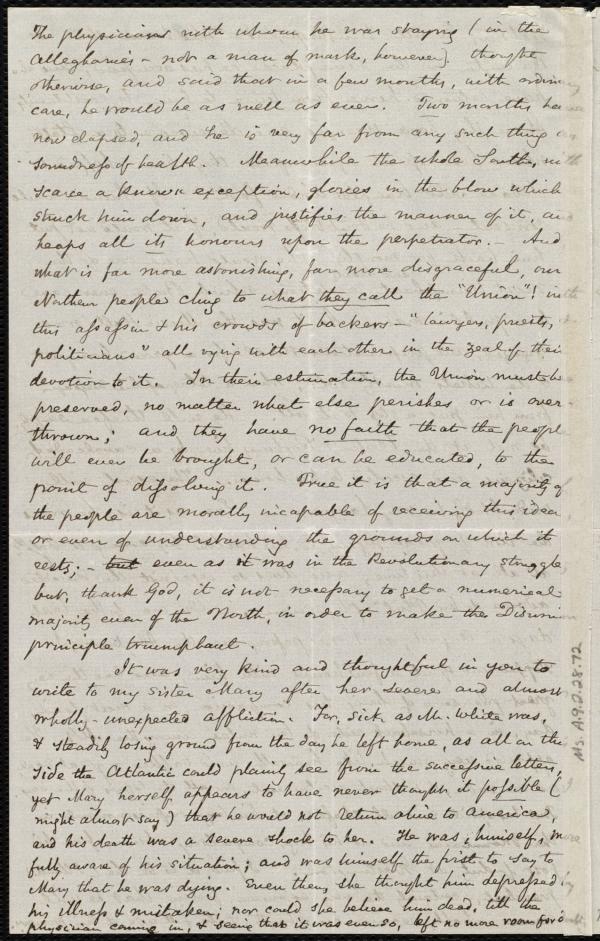 The physicians with whom he was staying (in the
Alleghanies - not a man of mark, however) thought
otherwise, and said that in a few months, with ordin
care, he would be as well as ever. Two months ha
now elapsed, and he is very far from any such thing as
soundness of health. Meanwhile the whole South, with
scarce a known exception, glories in the blow which
struck him down, and justifies the manner of it, an
heaps all its honours upon the perpetrator. - And
what is far more astonishing, far more disgraceful, our
Northern people cling to what they call the "Union"! in
this assassin & his crowds of backers - "lawyers, priests,
politicians" all vying with each other in the zeal of their
devotion to it. In their estimation, the Union must be
preserved, no matter what else perishes or is over-
thrown; and they have no faith that the people
will ever be brought, or can be educated, to the
point of dissolving it. True it is that a majority of
the people are morally incapable of receiving this idea
or even of understanding the grounds on which it
rests; - but even as it was in the Revolutionary struggle
but, thank God, it is not necessary to get a numerical
majority even of the North, in order to make the Disunion
principle triumphant.
It was very kind and thoughtful in you to
write to my sister Mary after her severe and almost
wholly-unexpected affliction. For, sick as Mr. White was,
& steadily losing ground from the day he left home, as all on this
side the Atlantic could plainly see from the successive letters,
yet Mary herself appears to have never thought it possible (I
might almost say) that he would not return alive to America,
and his death was a severe shock to her. He was, himself, more
fully aware of his situation; and was himself the first to say to
Mary that he was dying. Even then, she thought him depressed by
his illness & mistaken; nor could she believe him dead, till the
physician coming in, & seeing that it was even so, left no more room for
Ms. A.9.2.28.72